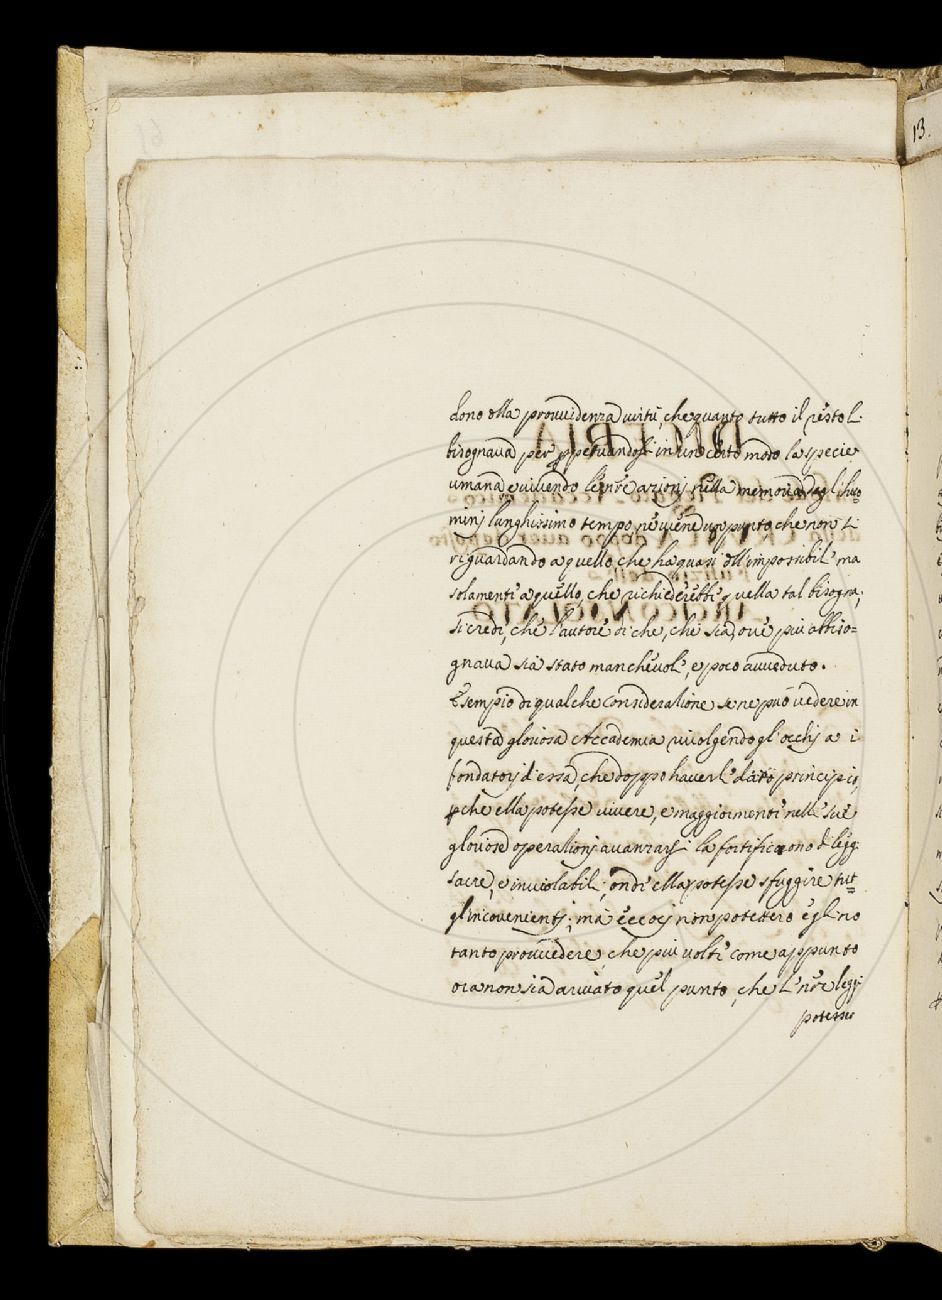 13.
dono della provvidenza virtù, che quanto tutto il resto l.
bisognava per perpetuandosi in un certo modo la specie
umana, e vivendo le nre azionj nella memoria degl'huo
minj lunghissimo tempo, ne viene un punto che non si
riguardando a quello, che ha quasi dell'impossibil' ma
solamente a quello, che richiederebbe quella tal bisogna;
si credi, che l'autore di che, che sia, ove più abbiso=
gnava sia stato manchevol', e poco avveduto.
Esempio di qualche consideratione se ne può vedere in
questa gloriosa Accademia rivolgendo gl'occhj a i
fondatorj d'essa, che doppo haverl' dato principio,
pche ella potesse vivere, e maggiormente nell' sue
gloriose operationj avanzarsi la fortificorono di legg.
sacre, e inviolabil', onde ella potesse sfuggire tut=
gl'incovenientj; ma eccoj non potettero egl'no
tanto provvedere, che più volte come appunto
ora non sia arrivato quel punto, che l' nre legg.
potesse